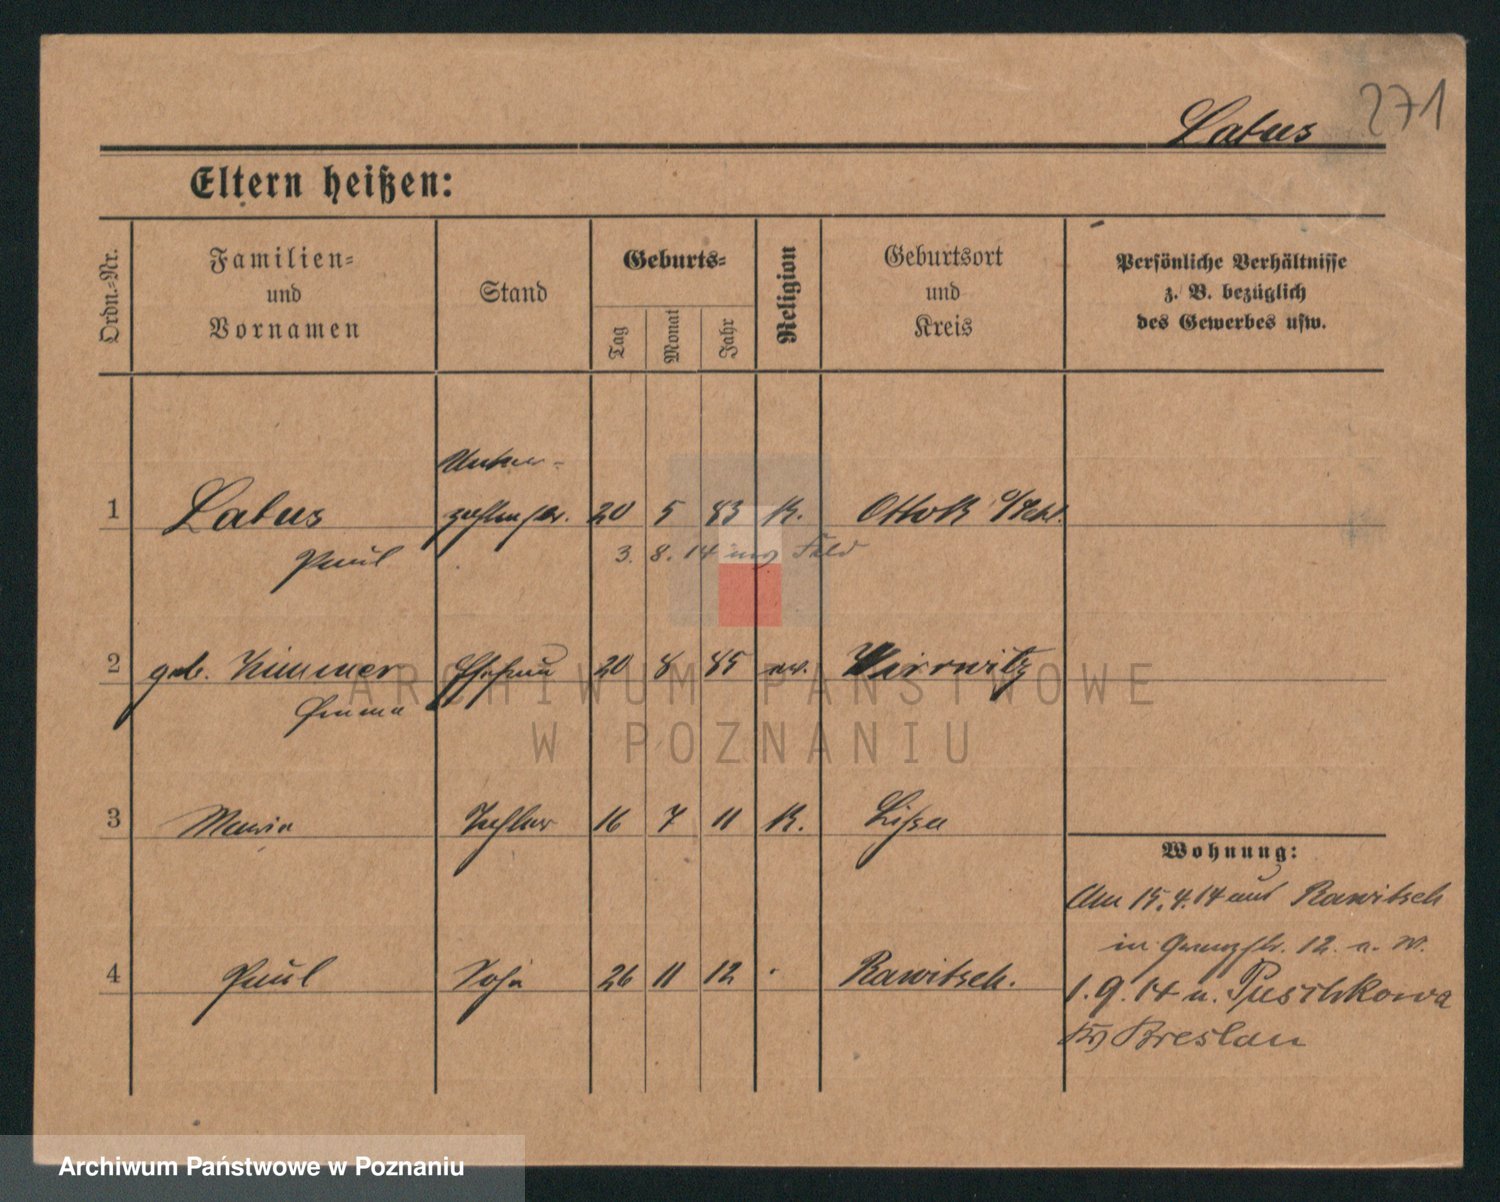 271
Latus
Eltern heißen:
Ordn.-Nr.
Familien- und Vornamen
Stand
Geburts-
Tag
Monat
Jahr
Religion
Geburtsort und Kreis
Persönliche Verhältnisse
z. B. bezüglich
des Gewerbes usw.
Unter-
1 Latus zahlmstr. 20 5 83 K. Ottok
Paul
3. 8. 14 ins Feld
2 geb. Kimmer Ehefrau 20 8 85 ev. Wirrwitz
Emma
3 Maria Tochter 16 7 11 K. Lissa
4 Paul Sohn 26 11 12 Rawitsch.
Wohnung:
Am 15.4.14 aus Rawitsch
in 12. a. W.
1.9.14 n. Puschkowa
Kr Breslau
ARCHIWUM PAŃSTWOWE
W POZNANIU
Archiwum Państwowe w Poznaniu